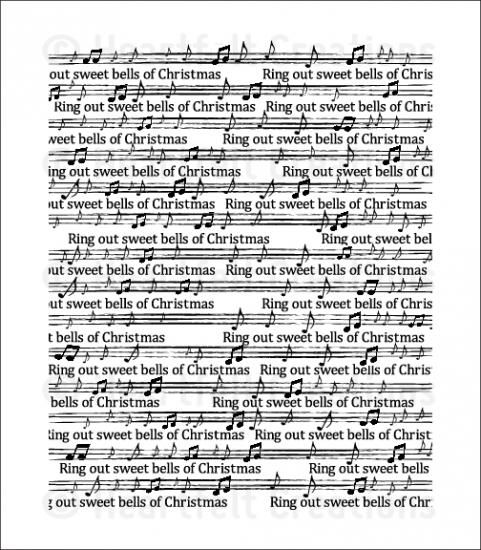 © Heartfelt Creations
ng out sweet bells of Christmas Ring out sweet bells of Chris
Ring out sweet bells of Christmas Ring out sweet bells of Chri
weet bells of Christmas Ring out sweet bells of Christmas
ing out sweet bells of Christmas Ring out sweet bells of Cl
ut sweet bells of Christmas Ring out sweet bells of Christmas
Ring out sweet bells of Christmas Ring out sweet bel
out sweet bells of Christmas Ring out sweet bells of Christmas
out sweet bells of Christmas Ring out sweet bells of Chris
t bells of Christmas Ring out sweet bells of Christmas
Ring out sweet bells of Christmas Ring out sweet bells of Chris
bells of Christmas Ring out sweet bells of Christmas
ing out sweet bells of Christmas Ring out sweet bells of Christ
Ring out sweet bells of Christmas Ring out sweet bells
g out sweet bells of Christmas Ring out sweet bells of Chr
© Heartfelt Creations